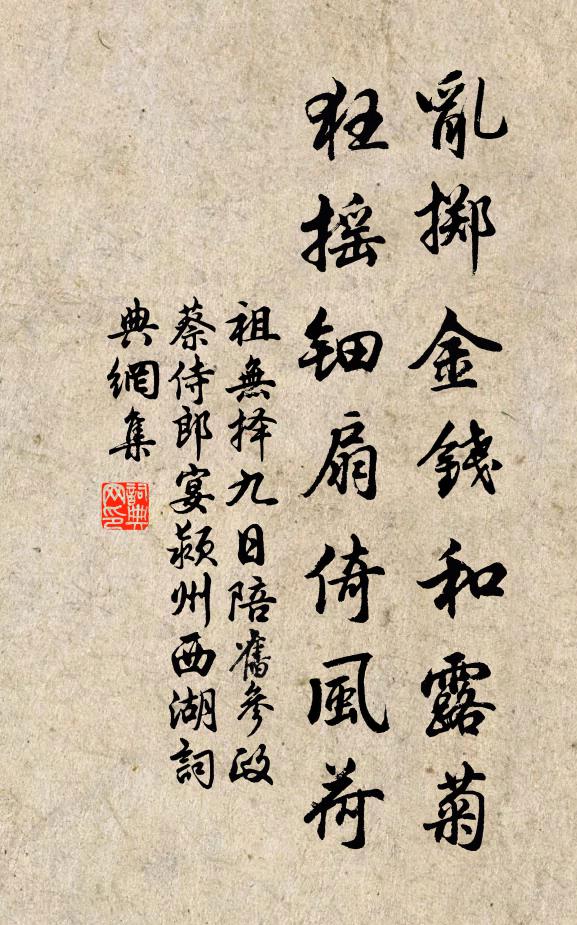 亂擲金錢和露菊
狂摇鈿扇倚風荷
祖無择九日陪舊參政
蔡侍郎宴颍州西湖詞
典網集
詞典
网印